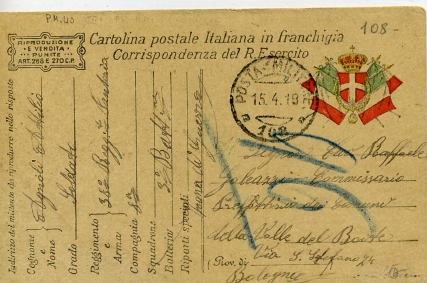 PM. 43
108-
RIPRODUZIONE
E VENDITA
PUNITE
ART. 268 E 270 C.P.
Cartolina postale Italiana in franchigia
Corrispondenza del R. Esercito
POSTA MILITARE
15.4.19
108
Indirizzo del mittente da riprodurre nelle risposte
Cognome e Nome
Grado Soldato
Reggimento e Arma 35° Regg. Fanteria
Compagnia
Squadrone
Batteria
Riparti speciali
zona di Guerra
Signor Cav Raffaele
Galeazzi Commissario
Prefettizio dei Comuni
della Valle del
Via S. Stefano 74
(Prov. di
Bologna